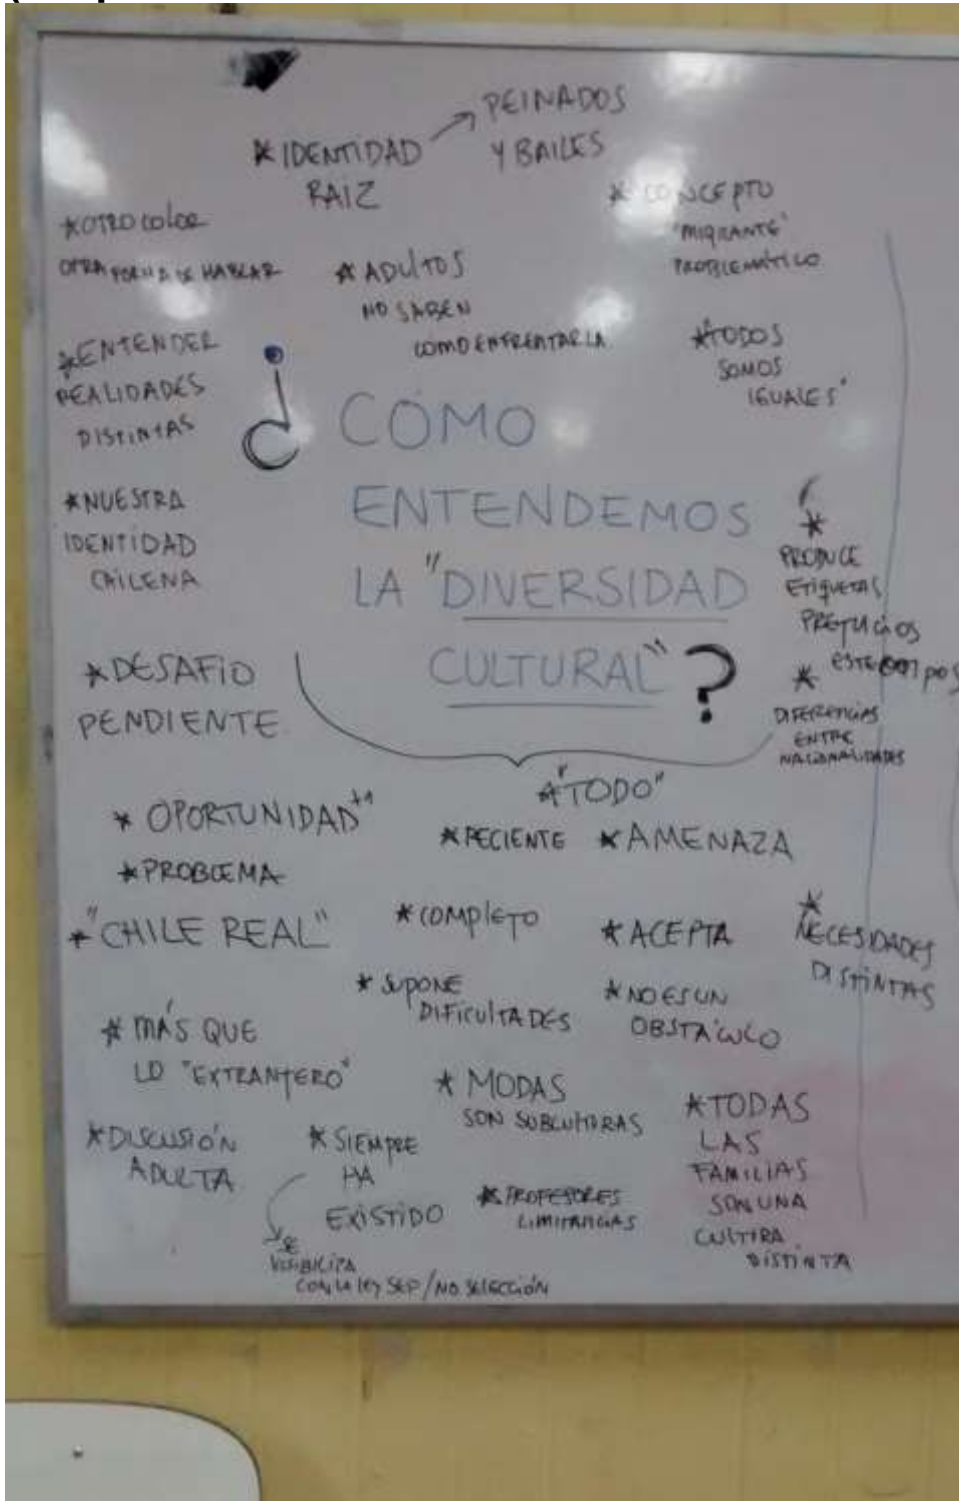 PEINADOS
Y BAILES
* IDENTIDAD
RAIZ
* CONCEPTO
"MIGRANTE"
PROBLEMÁTICO
* OTRO COLOR
OTRA FORMA DE HABLAR
* ADULTOS
NO SABEN
COMO ENFRENTARLA
* "TODOS
SOMOS
IGUALES"
* ENTENDER
REALIDADES
DISTINTAS
* NUESTRA
IDENTIDAD
CHILENA
¿CÓMO
ENTENDEMOS
LA "DIVERSIDAD
CULTURAL"?
*
PRODUCE
ETIQUETAS
PREJUICIOS
*
DIFERENCIAS
ENTRE
NACIONALIDADES
* DESAFIO
PENDIENTE
* "TODO"
* OPORTUNIDAD
* PROBLEMA
* RECIENTE
* AMENAZA
* "CHILE REAL"
* COMPLETO
* ACEPTA
*
NECESIDADES
DISTINTAS
* SUPONE
DIFICULTADES
* NO ES UN
OBSTÁCULO
* MÁS QUE
LO "EXTRANJERO"
* MODAS
SON SUBCULTURAS
* TODAS
LAS
FAMILIAS
SON UNA
CULTURA
DISTINTA
* DISCUSIÓN
ADULTA
* SIEMPRE
HA
EXISTIDO
* PROFESORES
LIMITANCIAS
SE
VISIBILIZA
CON LA LEY SEP/NO SELECCIÓN